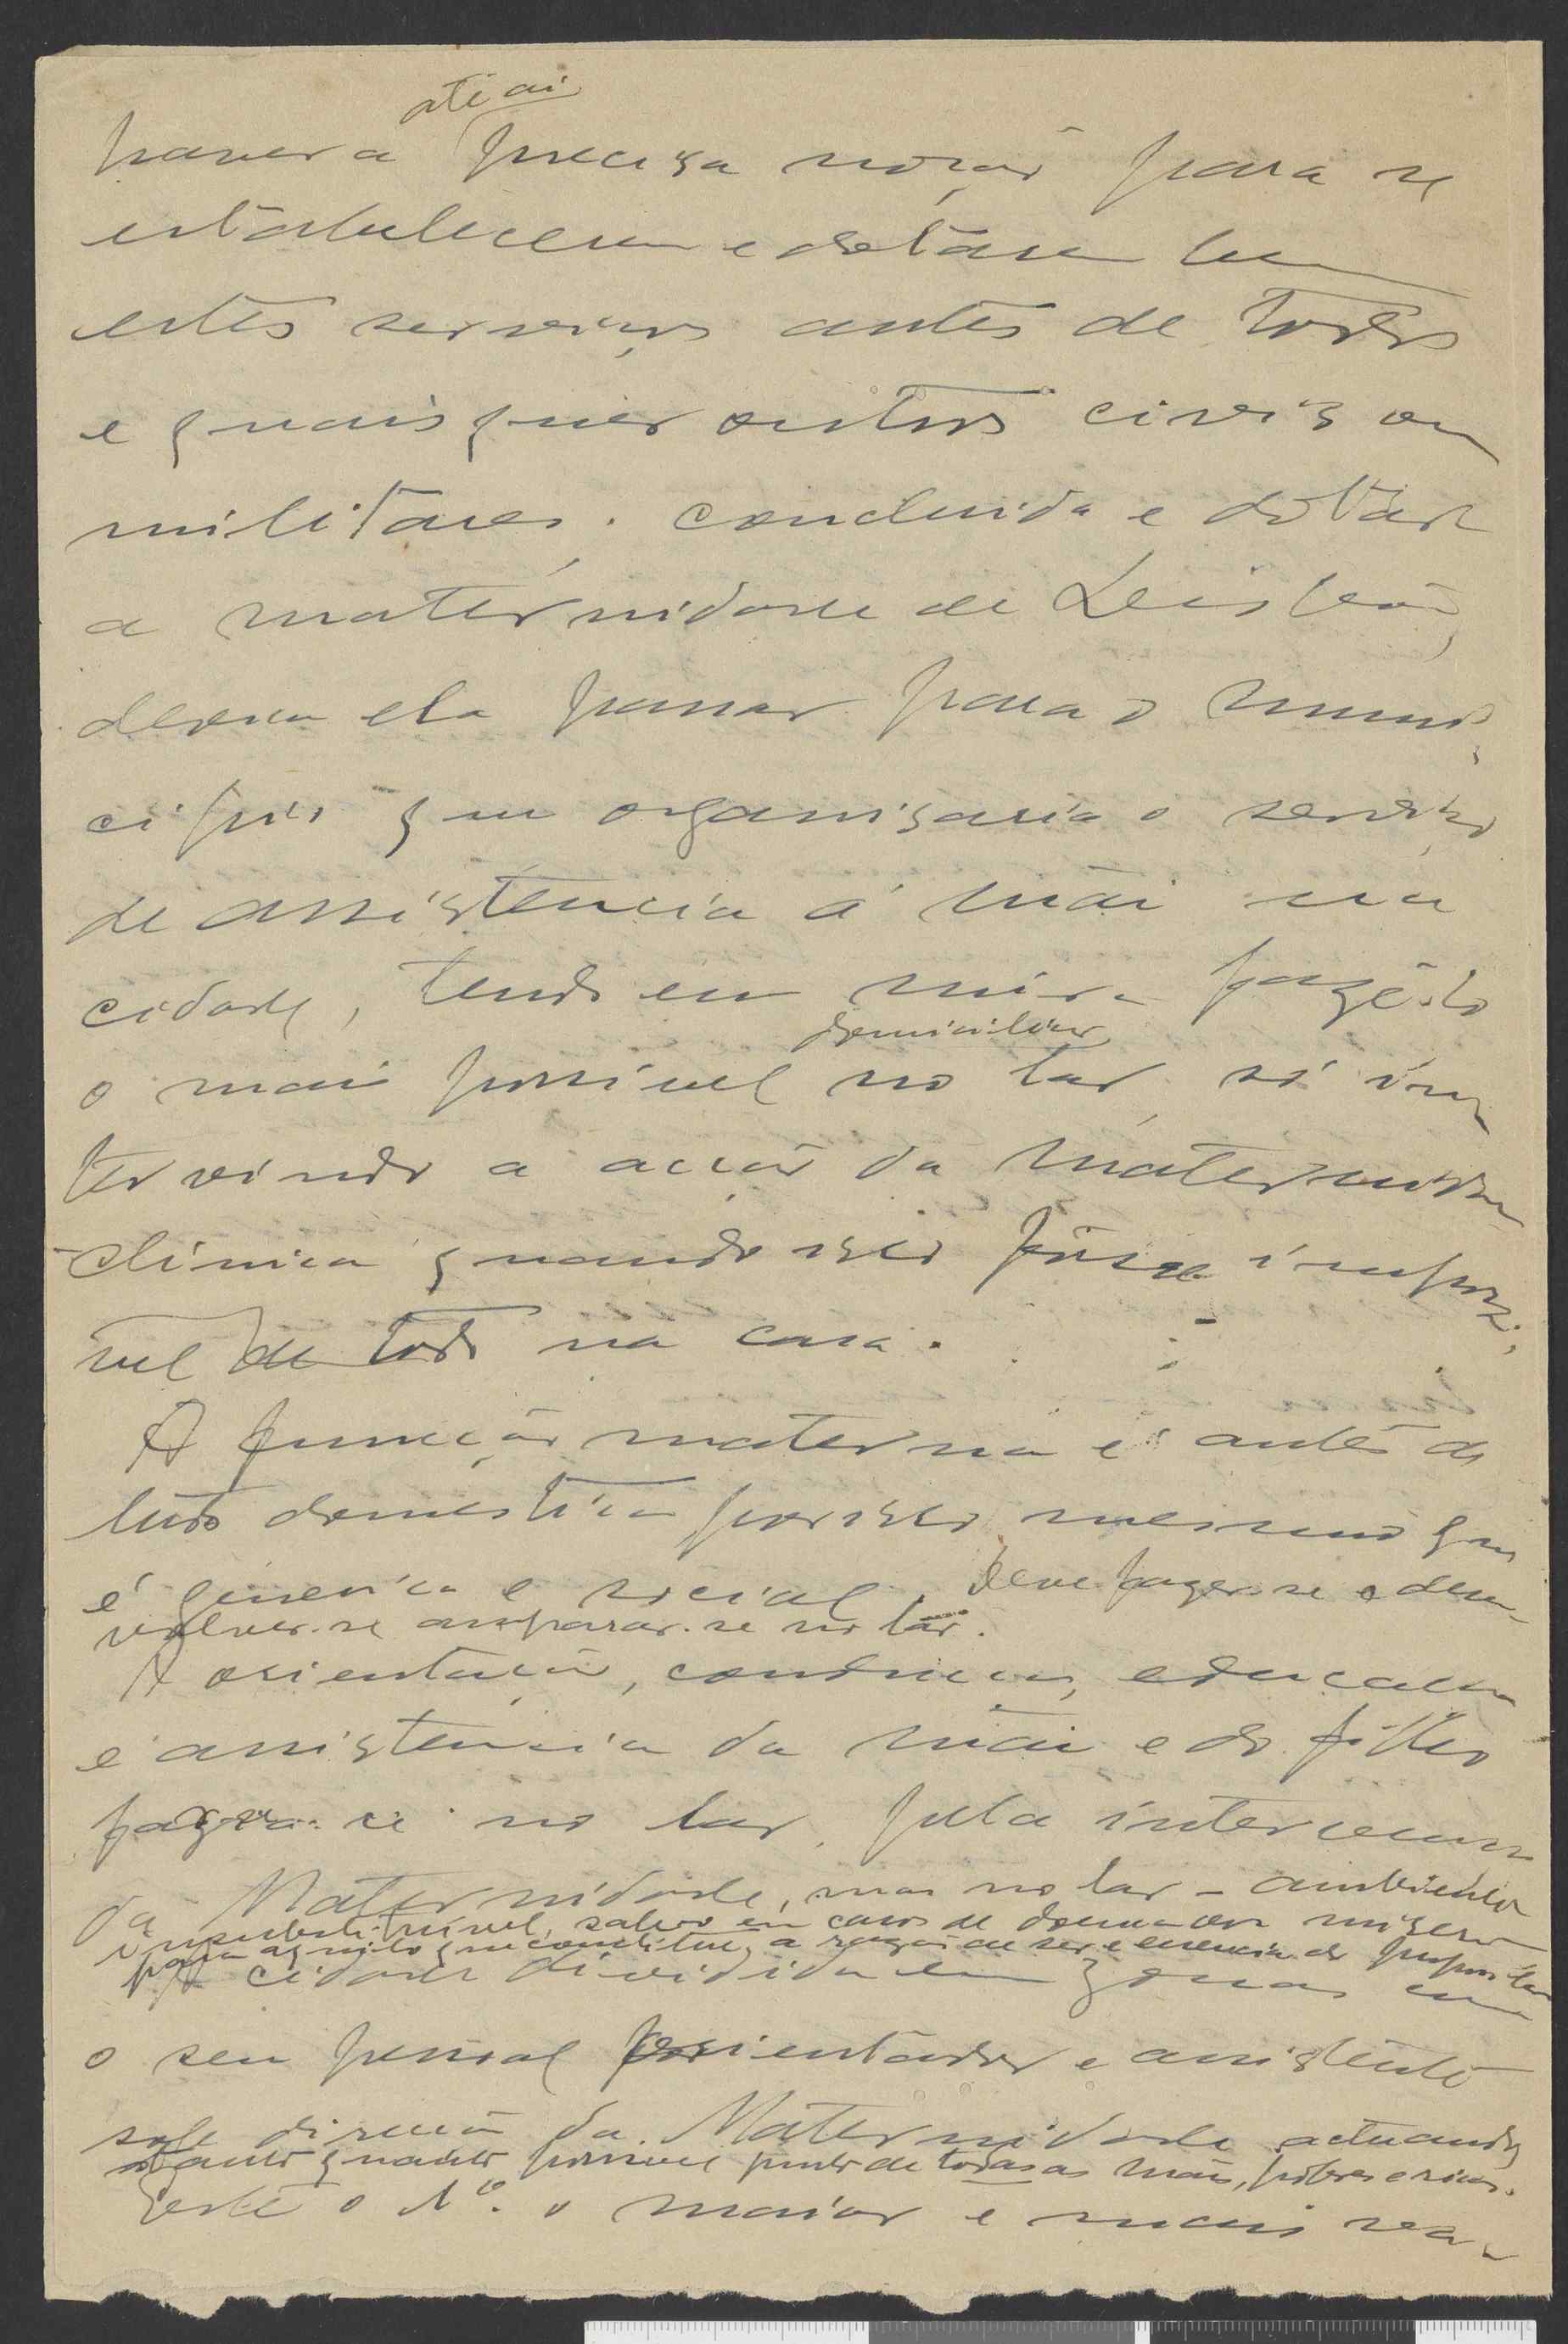 até aí
haver a precisa noção para se
estabelecerem e dotarem bem
estes serviços antes de todos
e quaisquer outros civis ou
militares. Concluida e dotada
a maternidade de Lisboa,
devia ela passar para o muni-
cipio que organisaria o serviço
de assistencia á mãi na
cidade, tendo em mira fazê-lo
domiciliar
o mais possivel no lar, só in-
tervindo a acção da maternidade
-clinica quando isso fosse impossi-
vel de todo na casa.
A funcção materna é antes de
tudo domestica por isso mesmo que
é generica e social, deve fazer-se e desen-
volver-se amparar-se no lar.
A orientação, condução, educação
e assistencia da mãi e do filho
no lar, pela intervenção
da Maternidade, mas no lar - ambiente
insubstituivel, salvo em casos de miseria
para aquilo que constitue a razão de ser e essencia do
A cidade dividida em zonas com
o seu pessoal orientador e assistente
sob direcção da Maternidade actuando
tanto quanto possivel junto de todas as mãis, pobres e ricas.
Este o 1º. o maior e mais